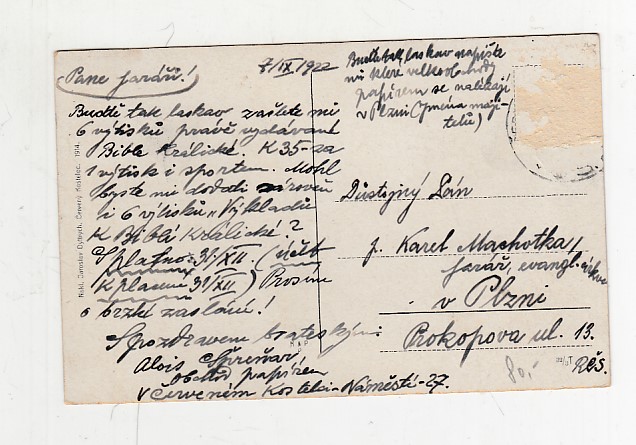 7/IX 1922
Pane faráři!
Buďte tak laskav zašlete mi
6 výtisků právě vydávané
Bible Králické. K 35-za
1 výtisk i sportem. Mohl
byste mi dodati zároveň
i 6 výtisků "Výkladů
K Bibli Králické"?
Splatno: 31/XII. (účet
K placení 31/XII) Prosím
o brzké zaslání!
S pozdravem bratrským
Alois
Obchod papírem
v Červeném Kostelci-Náměstí-27.
Buďte tak laskav napište
mi které velkoobchody
papírem se nalézají
v Plzni (Jména maji-
telů)
Důstojný Pán
p. Karel Machotka,
farář, evangl. církve
v Plzni
Prokopova ul. 13.
RČS.
80,-
Nákl. Jaroslav Dytrych, Červený Kostelec. 1914.